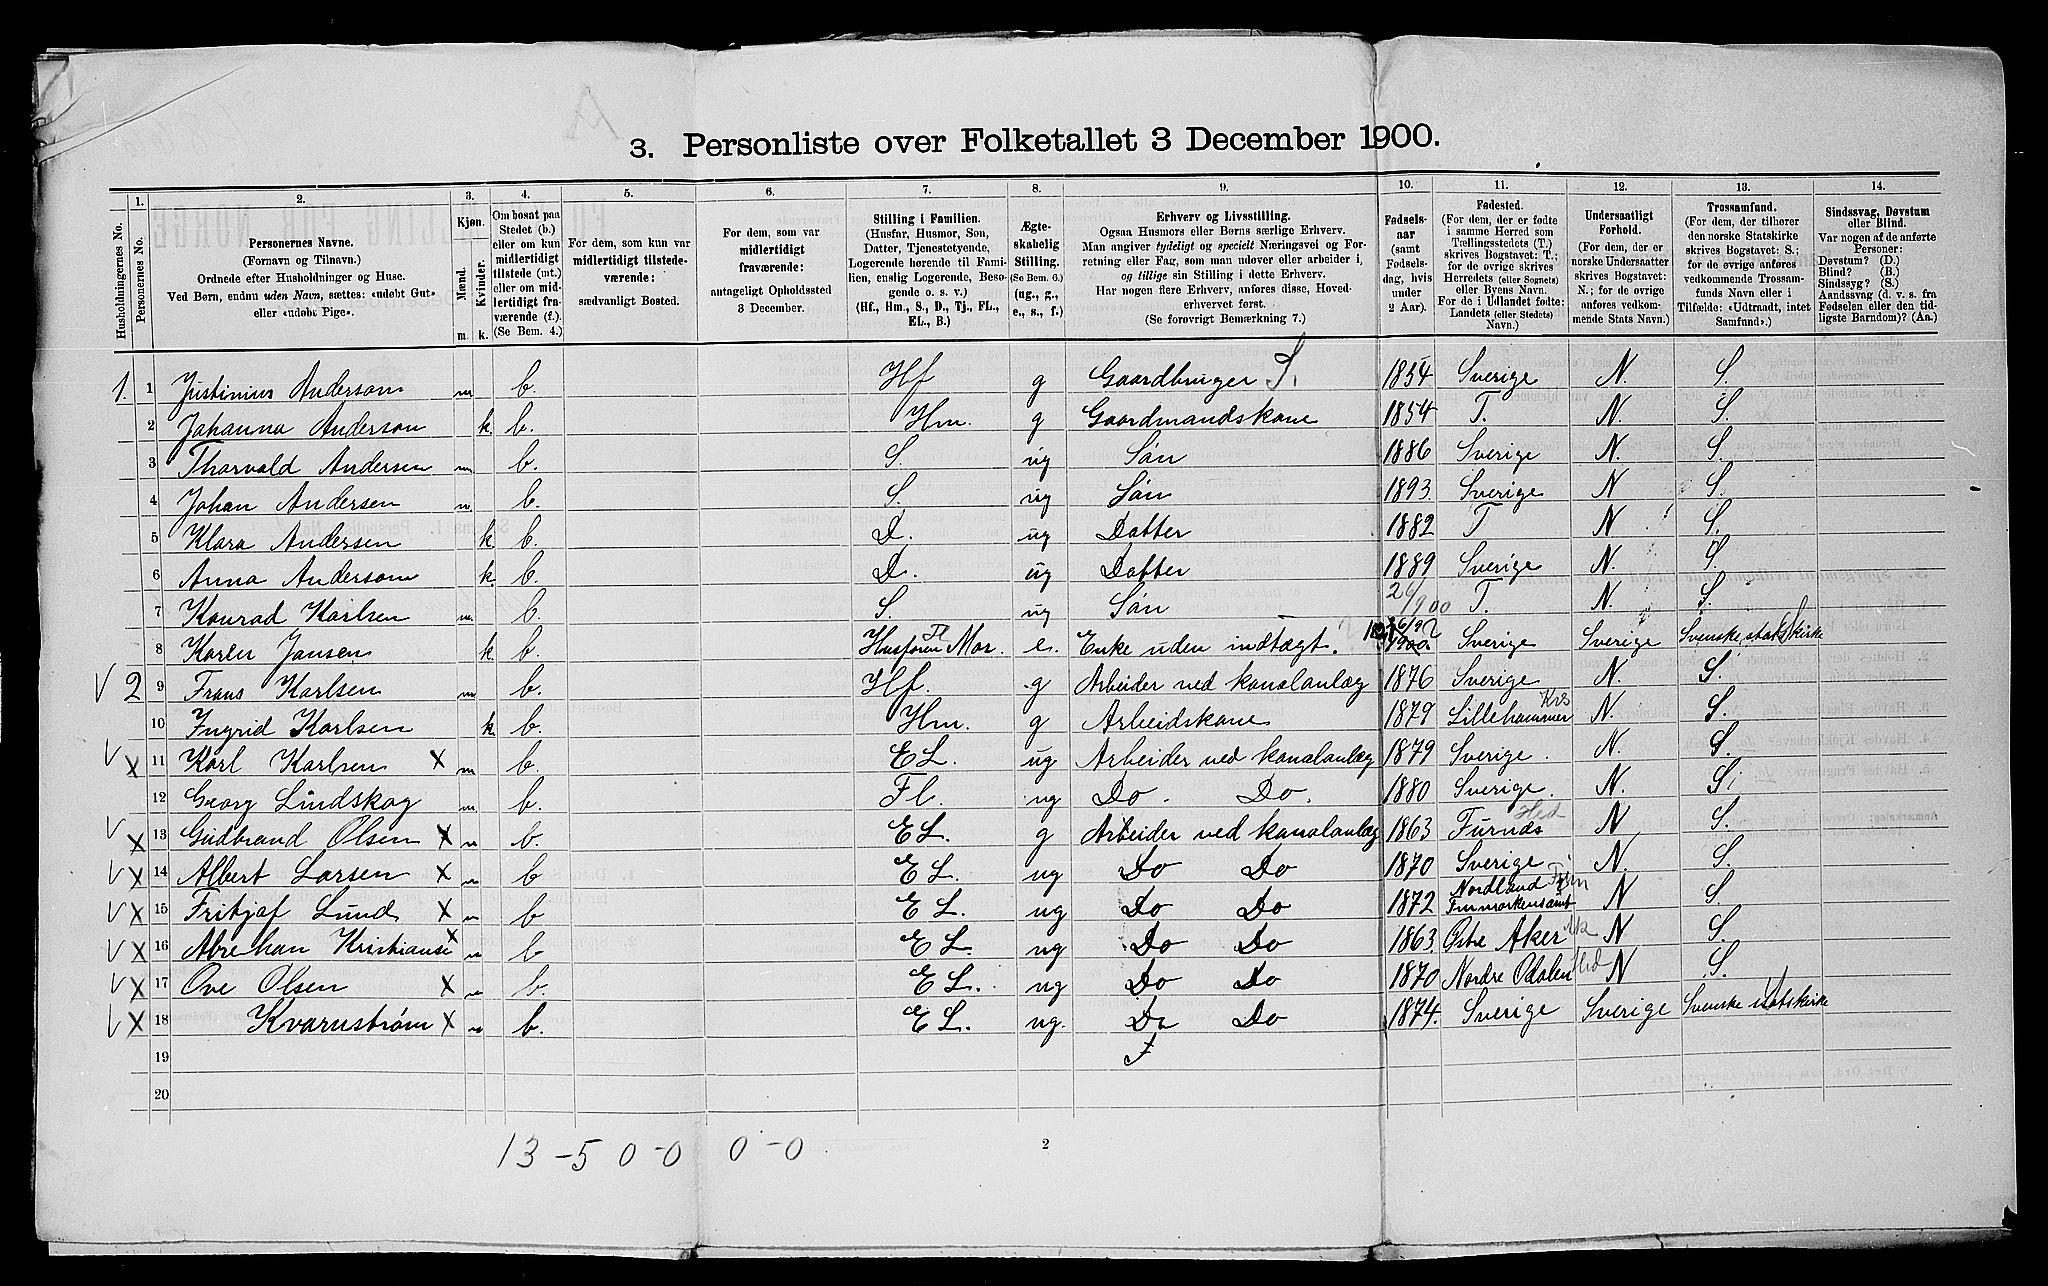 A
3. Personliste over Folketallet 3 December 1900.
Husholdningernes No.
1.
Personernes No.
2.
Personernes Navne.
(Fornavn og Tilnavn.)
Ordnede efter Husholdninger og Huse.
Ved Børn, endnu uden Navn, sættes: «udøbt Gut»
eller «udøbt Pige».
3.
Kjøn.
Mænd.
Kvinder.
m. k.
4.
Om bosat paa
Stedet (b.)
eller om kun
midlertidigt
tilstede (mt.)
eller om mid-
lertidigt fra-
værende (f.).
(Se Bem. 4.)
5.
For dem, som kun var
midlertidigt tilstede-
værende:
sædvanligt Bosted.
6.
For dem, som var
midlertidigt
fraværende:
antageligt Opholdssted
3 December.
7.
Stilling i Familien.
(Husfar, Husmor, Søn,
Datter, Tjenestetyende,
Logerende hørende til Fami-
lien, enslig Logerende, Besø-
gende o. s. v.)
(Hf., Hm., S., D., Tj., FL.,
EL., B.)
8.
Ægte-
skabelig
Stilling.
(Se Bem. 6.)
(ug., g.,
e., s., f.)
9.
Erhverv og Livsstilling.
Ogsaa Husmors eller Børns særlige Erhverv.
Man angiver tydeligt og specielt Næringsvei og For-
retning eller Fag, som man udøver eller arbeider i,
og tillige sin Stilling i dette Erhverv.
Har nogen flere Erhverv, anføres disse, Hoved-
erhvervet først.
(Se forøvrigt Bemærkning 7.)
10.
Fødsels-
aar
(samt
Fødsels-
dag, hvis
under
2 Aar).
11.
Fødested.
(For dem, der er fødte
i samme Herred som
Tællingsstedets (T.)
skrives Bogstavet: T.;
for de øvrige skrives
Herredets (eller Sognets)
eller Byens Navn.
For de i Udlandet fødte:
Landets (eller Stedets)
Navn.)
12.
Undersaatligt
Forhold.
(For dem, der er
norske Undersaatter
skrives Bogstavet:
N.; for de øvrige
anføres vedkom-
mende Stats Navn.)
13.
Trossamfund.
(For dem, der tilhører
den norske Statskirke
skrives Bogstavet: S.;
for de øvrige anføres
vedkommende Trossam-
funds Navn eller i
Tilfælde: «Udtraadt, intet
Samfund».)
14.
Sindssvag, Døvstum
eller Blind.
Var nogen af de anførte
Personer:
Døvstum? (D.)
Blind? (B.)
Sindssyg? (S.)
Aandssvag (d. v. s. fra
Fødselen eller den tid-
ligste Barndom)? (Aa.)
1. 1 Justinius Anderson m b. Hf g Gaardbruger S. 1854 Sverige N. S.
2 Johanna Anderson k b. Hm. g Gaardmandskone 1854 T. N. S.
3 Thorvald Andersen m b. S. ug Søn 1886 Sverige N. S.
4 Johan Andersen m. b. S. ug Søn 1893. Sverige N S.
5 Klara Andersen k b. D. ug Datter 1882 T N. S.
6 Anna Anderson k. b. D. ug Datter 1889 Sverige N. S.
7 Konrad Karlsen m. b. S. ug Søn T. N. S.
8 Jansen k. b. Husforen Mor. Fl e. Enke uden indtægt. 1900 Sverige Sverige Svenske statskirke
V 2 9 Frans Karlsen m b. Hf. g Arbeider ved kanalanlæg 1876 Sverige N. S.
10 Ingrid Karlsen k. b. Hm. g Arbeidskone 1879 Lillehammer Krs N. S.
V X 11 Karl Karlsen X m b. E L. ug Arbeider ved kanalanlæg 1879 Sverige. N. S.
12 Georg Lindskog m b. Fl. ug Do. Do. 1880 Sverige. N. S.
V X 13 Gudbrand Olsen X m b. E L. g Arbeider ved kanalanlæg 1863 Furnæs Hed N S.
V X 14 Albert Larsen X m b E L. ug Do Do 1870 Sverige N. S.
V X 15 Fritjof Lund X m b E L. ug Do Do 1872 Nordland Finmarkensamt Finm N S.
V X 16 Abrehan Kristianse X m b E L. ug Do Do 1863. Østre Aker Ak N S.
V X 17 Ove Olsen X m b. E L. ug Do Do 1870 Nordre Odalen Hed N S.
V X 18 Kvarnstrøm X m b. E L. ug. Do Do 1874. Sverige Sverige Svenske statskirke
19
20
13 - 5 0 - 0 0 - 0
2